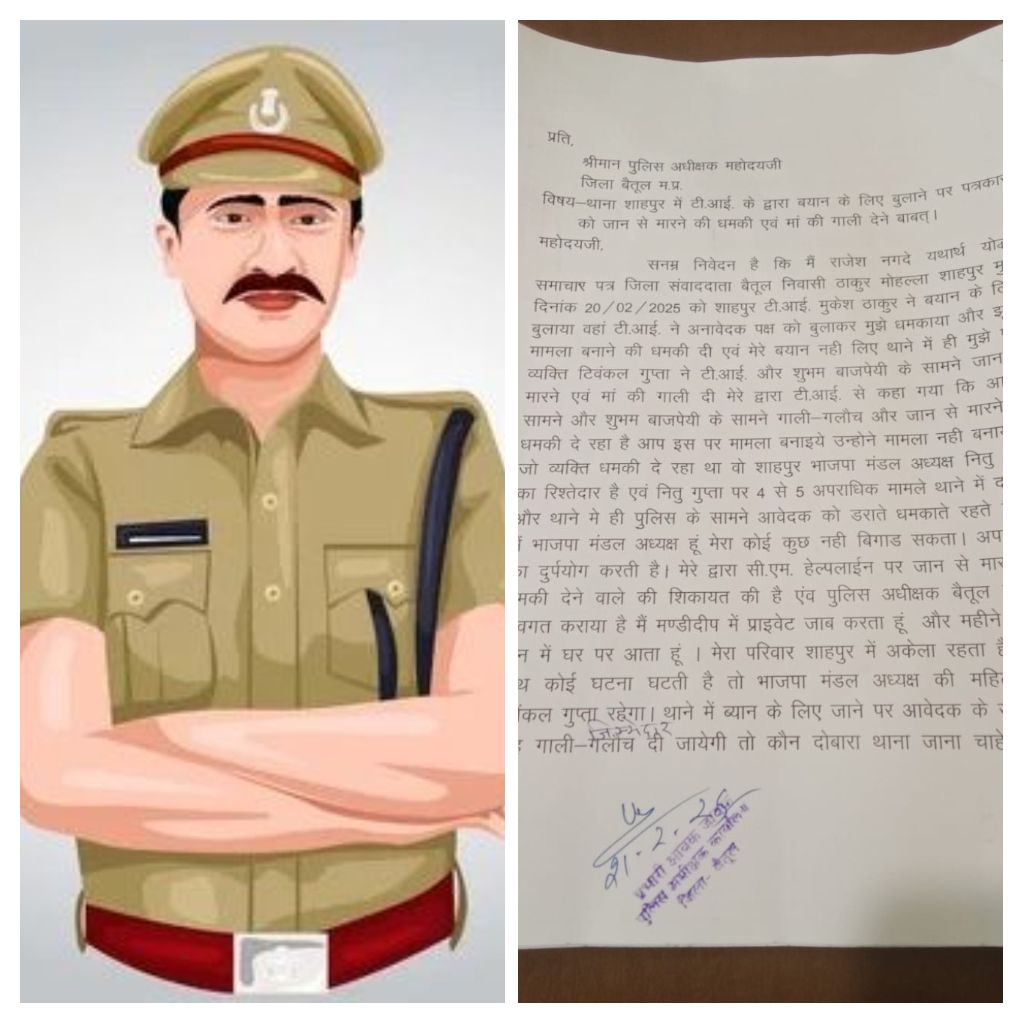 प्रति,
श्रीमान पुलिस अधीक्षक महोदयजी
जिला बैतूल म.प्र.
विषय–थाना शाहपुर में टी.आई. के द्वारा बयान के लिए बुलाने पर पत्रकार
को जान से मारने की धमकी एवं मां की गाली देने बाबत्।
महोदयजी,
सनम्र निवेदन है कि मैं राजेश नगदे यथार्थ
समाचार पत्र जिला संवाददाता बैतूल निवासी ठाकुर मोहल्ला शाहपुर
दिनांक 20/02/2025 को शाहपुर टी.आई. मुकेश ठाकुर ने बयान के
बुलाया वहां टी.आई. ने अनावेदक पक्ष को बुलाकर मुझे धमकाया और
मामला बनाने की धमकी दी एवं मेरे बयान नही लिए थाने में ही मुझे
व्यक्ति टिवंकल गुप्ता ने टी.आई. और शुभम बाजपेयी के सामने जान
मारने एवं मां की गाली दी मेरे द्वारा टी.आई. से कहा गया कि
सामने और शुभम बाजपेयी के सामने गाली–गलौच और जान से मारने
धमकी दे रहा है आप इस पर मामला बनाइये उन्होने मामला नही
जो व्यक्ति धमकी दे रहा था वो शाहपुर भाजपा मंडल अध्यक्ष नितु
का रिश्तेदार है एवं नितु गुप्ता पर 4 से 5 अपराधिक मामले थाने में
और थाने मे ही पुलिस के सामने आवेदक को डराते धमकाते रहते
भाजपा मंडल अध्यक्ष हूं मेरा कोई कुछ नही बिगाड सकता।
दुर्पयोग करती है। मेरे द्वारा सी.एम. हेल्पलाईन पर जान से
मकी देने वाले की शिकायत की है एंव पुलिस अधीक्षक बैतूल
वगत कराया है मैं मण्डीदीप में प्राइवेट जाब करता हूं और महीने
न में घर पर आता हूं । मेरा परिवार शाहपुर में अकेला रहता
थ कोई घटना घटती है तो भाजपा मंडल अध्यक्ष की
कल गुप्ता रहेगा। थाने में ब्यान के लिए जाने पर आवेदक के
जिम्मेदार
गाली–गलौच दी जायेगी तो कौन दोबारा थाना जाना
21-2-25
प्रभारी आवक
पुलिस अधीक्षक कार्यालय
जिला- बैतूल